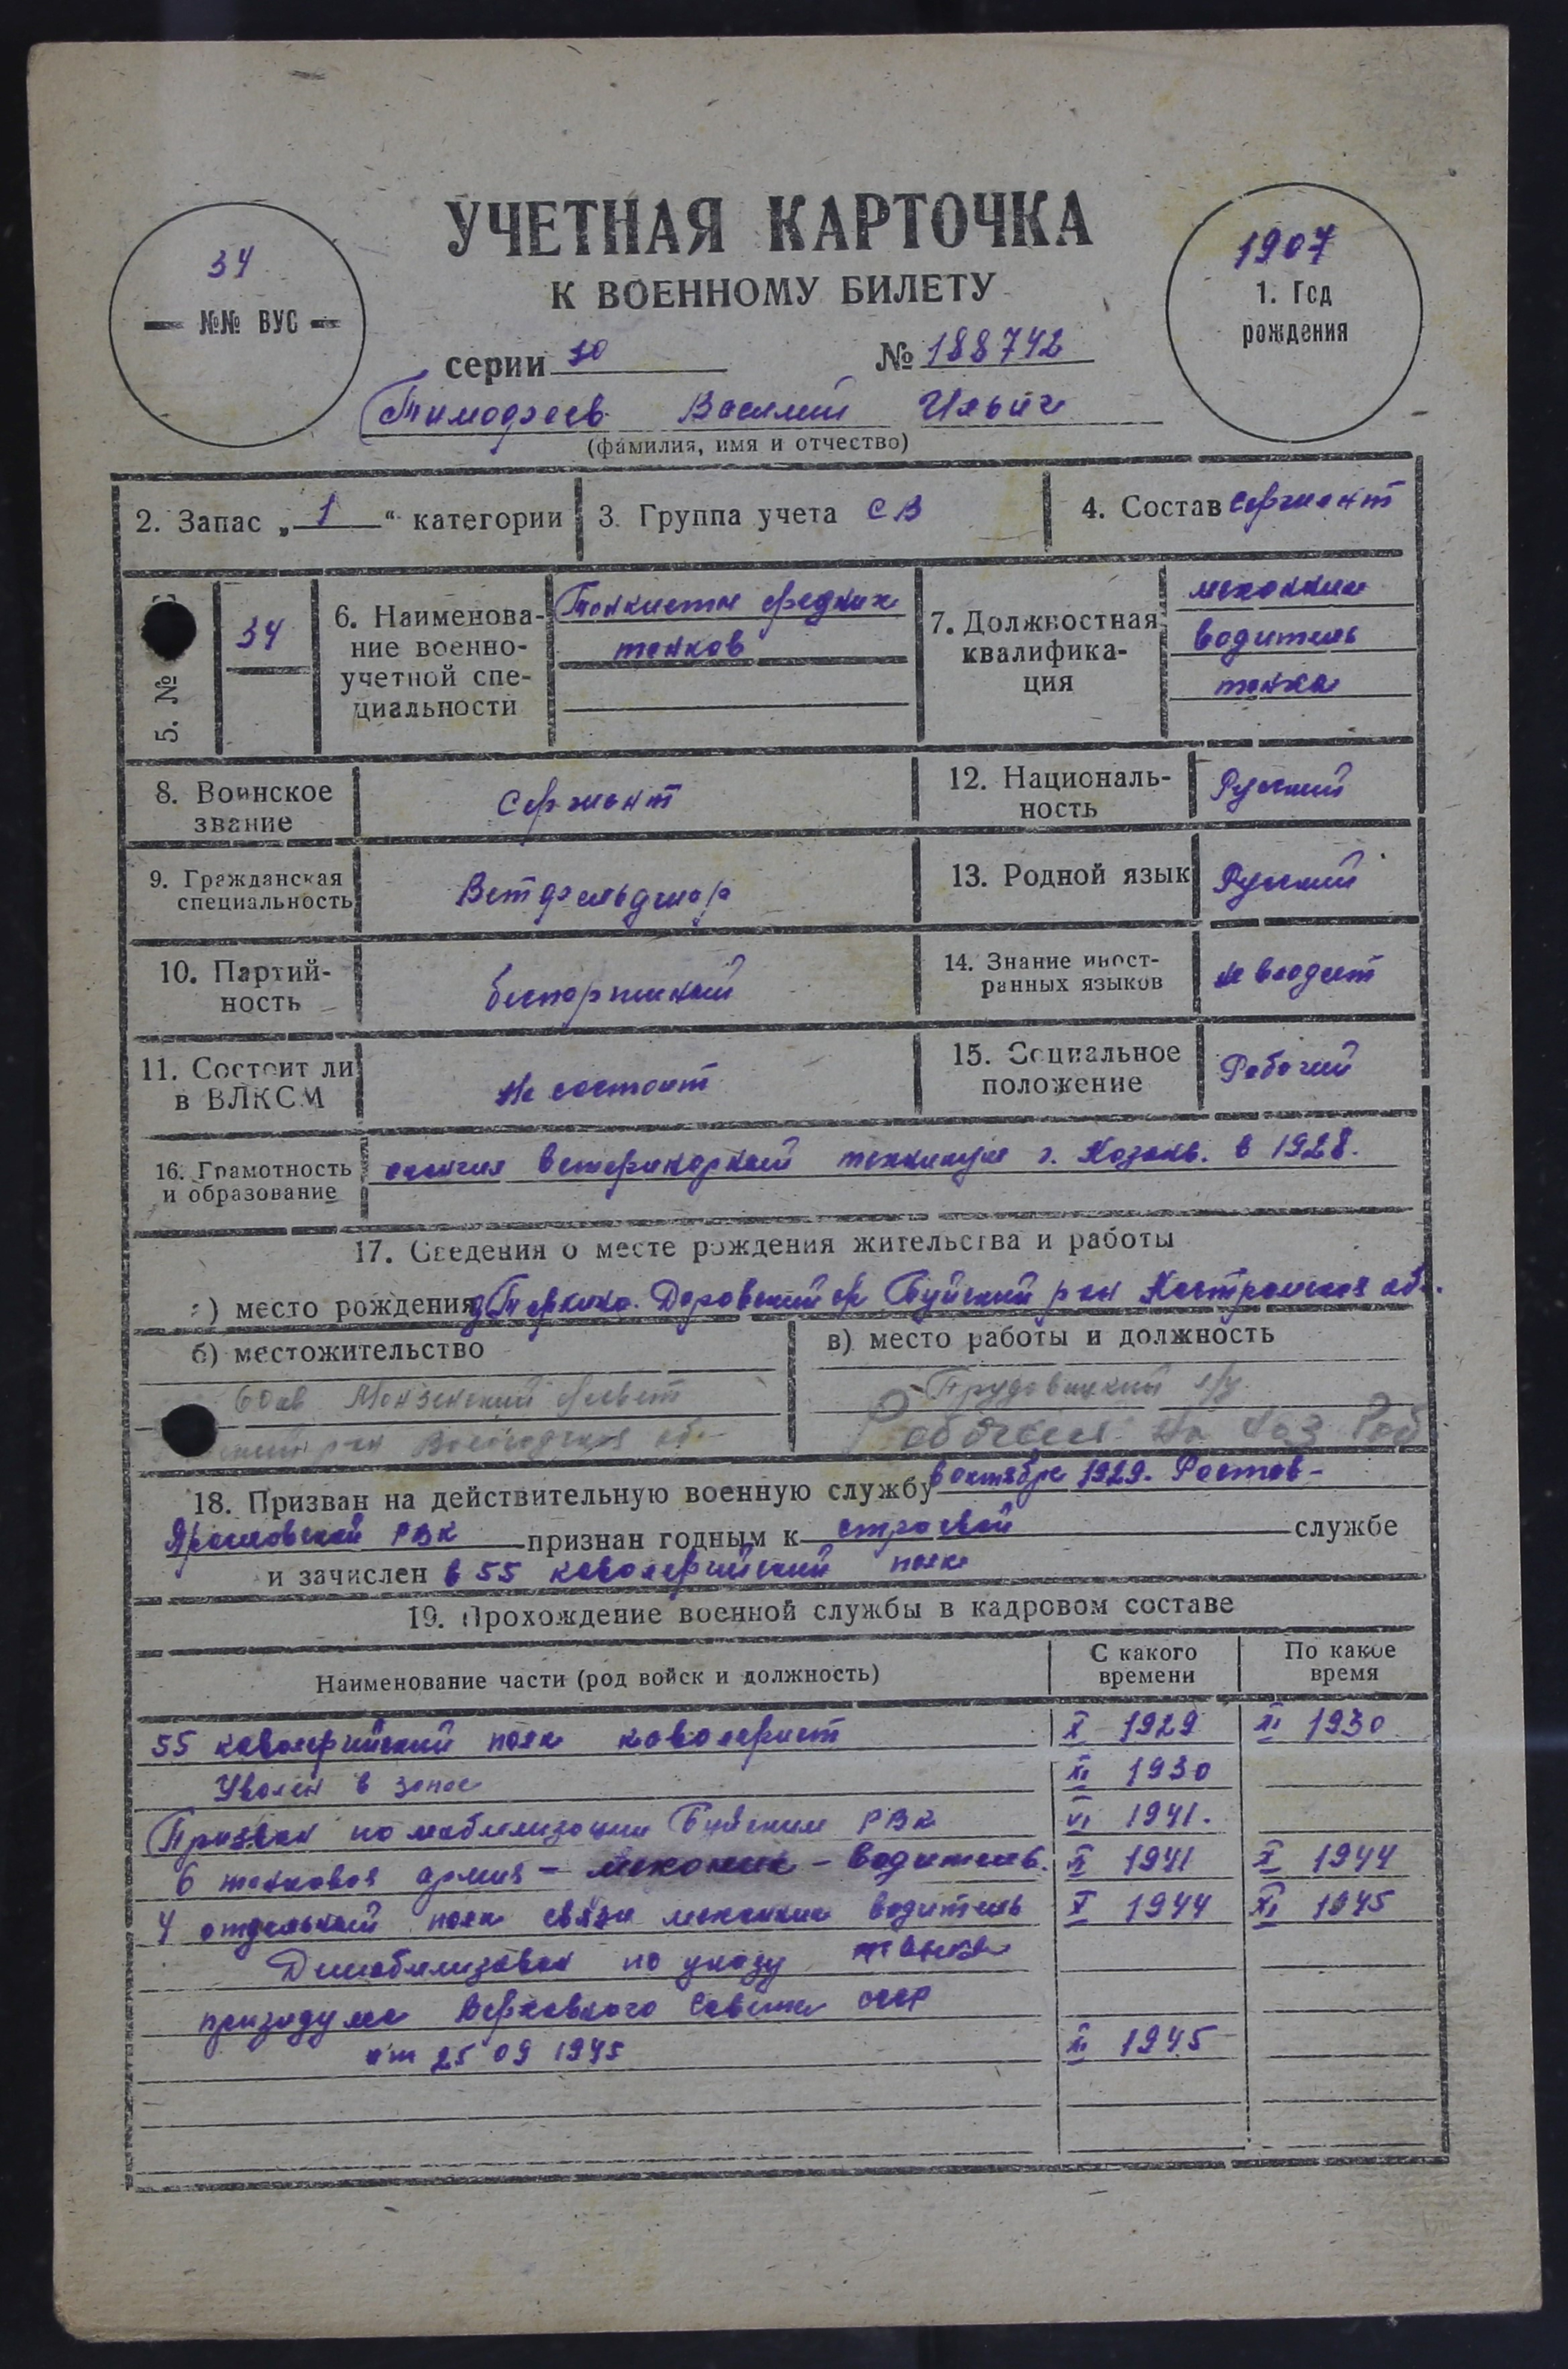 УЧЕТНАЯ КАРТОЧКА
К ВОЕННОМУ БИЛЕТУ
34
№№ ВУС
1907
1. Год
рождения
серии 10 № 188742
Тимофеев Василий Ильич
(фамилия, имя и отчество)
2. Запас „1“ категории
3. Группа учета СВ
4. Состав сержант
5. №
34
6. Наименова-
ние военно-
учетной спе-
циальности
Танкисты средних
танков
7. Должностная
квалифика-
ция
механик
водитель
танка
8. Воинское
звание
Сержант
12. Националь-
ность
Русский
9. Гражданская
специальность
Ветфельдшер
13. Родной язык
Русский
10. Партий-
ность
беспартийный
14. Знание иност-
ранных языков
не владеет
11. Состоит ли
в ВЛКСМ
не состоит
15. Социальное
положение
Рабочий
16. Грамотность
и образование
окончил ветеринарный техникум г. Казань. в 1928.
17. Сведения о месте рождения жительства и работы
а) место рождения д. Буйский р-он Костромская обл.
б) местожительство
в) место работы и должность
Монзенский с/совет
р-он Вологодская об.
18. Призван на действительную военную службу в октябре 1929. Ростов-
Ярославский РВК признан годным к строевой службе
и зачислен в 55 кавалерийский полк
19. Прохождение военной службы в кадровом составе
Наименование части (род войск и должность)
С какого
времени
По какое
время
55 кавалерийский полк кавалерист X 1929 XI 1930
Уволен в запас XI 1930
Призван по мобилизации Буйским РВК VI 1941.
6 танковая армия – механик – водитель. 1941 X 1944
4 отдельный полк связи механик водитель X 1944 XI 1945
Демобилизован по указу танка
призидума Верховного Совета СССР
от 25 09 1945 XI 1945